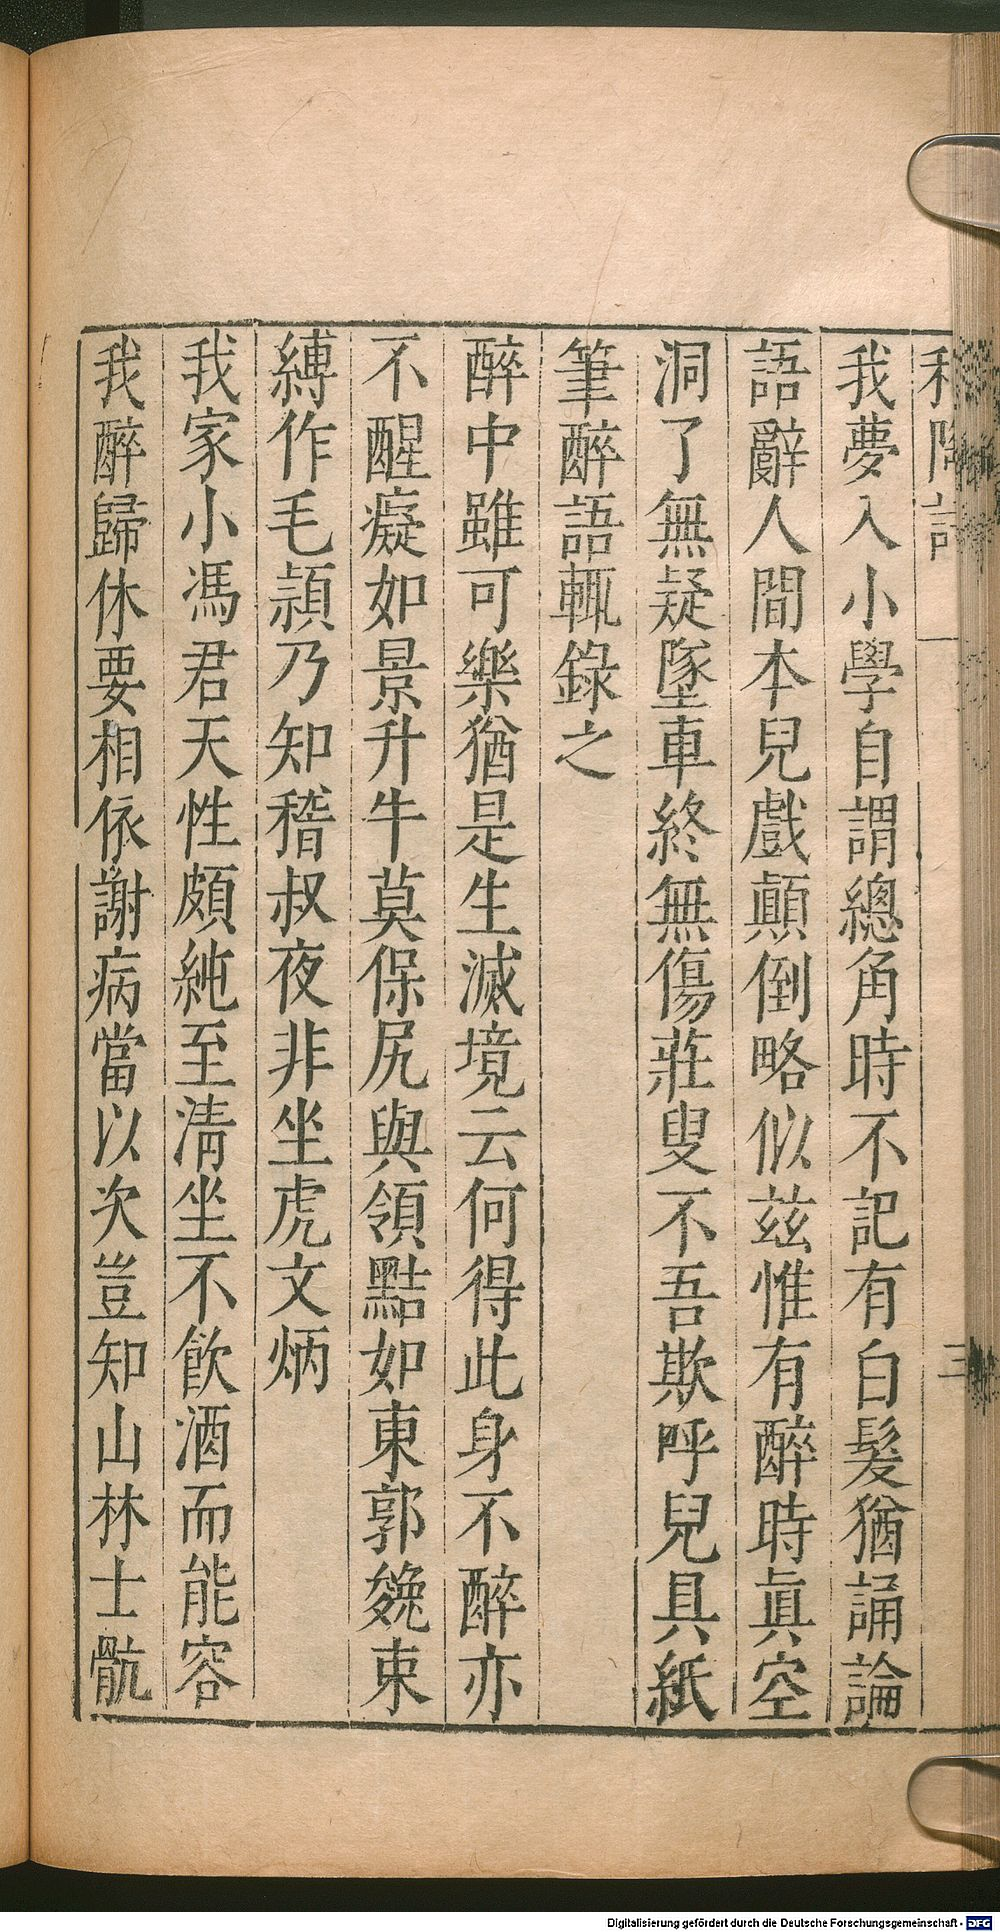 和陶詩
三
我夢入小學自謂總角時不記有白髮猶誦論
語辭人間本兒戲顛倒略似茲惟有醉時眞空
洞了無疑墜車終無傷莊叟不吾欺呼兒具紙
筆醉語輒錄之
醉中雖可樂猶是生滅境云何得此身不醉亦
不醒癡如景升牛莫保尻與領黠如東郭㕙束
縛作毛頴乃知嵇叔夜非坐虎文炳
我家小馮君天性頗純至淸坐不飮酒而能容
我醉歸休要相依謝病當以次豈知山林士骯
Digitalisierung gefördert durch die Deutsche Forschungsgemeinschaft - DFG